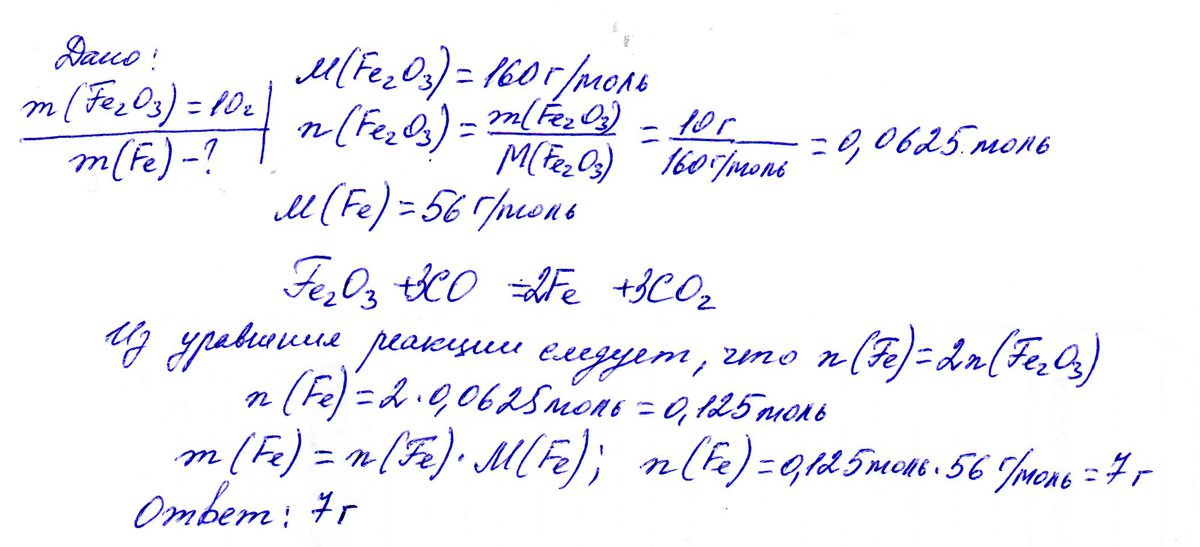 Дано:
m(Fe₂O₃) = 10г
m(Fe) - ?
M(Fe₂O₃) = 160 г/моль
n(Fe₂O₃) = m(Fe₂O₃)/M(Fe₂O₃) = 10 г/160 г/моль = 0,0625 моль
M(Fe) = 56 г/моль
Fe₂O₃ + 3CO = 2Fe + 3CO₂
Из уравнения реакции следует, что n(Fe) = 2n(Fe₂O₃)
n(Fe) = 2 · 0,0625 моль = 0,125 моль
m(Fe) = n(Fe) · M(Fe); n(Fe) = 0,125 моль · 56 г/моль = 7 г
Ответ: 7 г